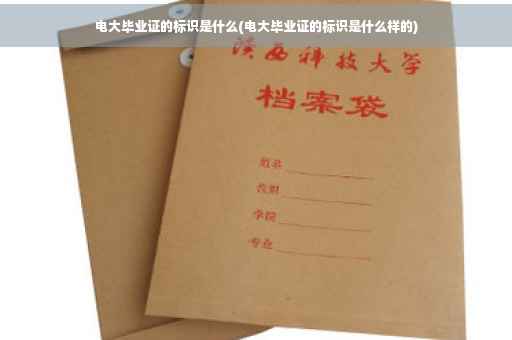 电大毕业证的标识是什么(电大毕业证的标识是什么样的)
陕西科技大学
档案袋
姓名
学院
专业